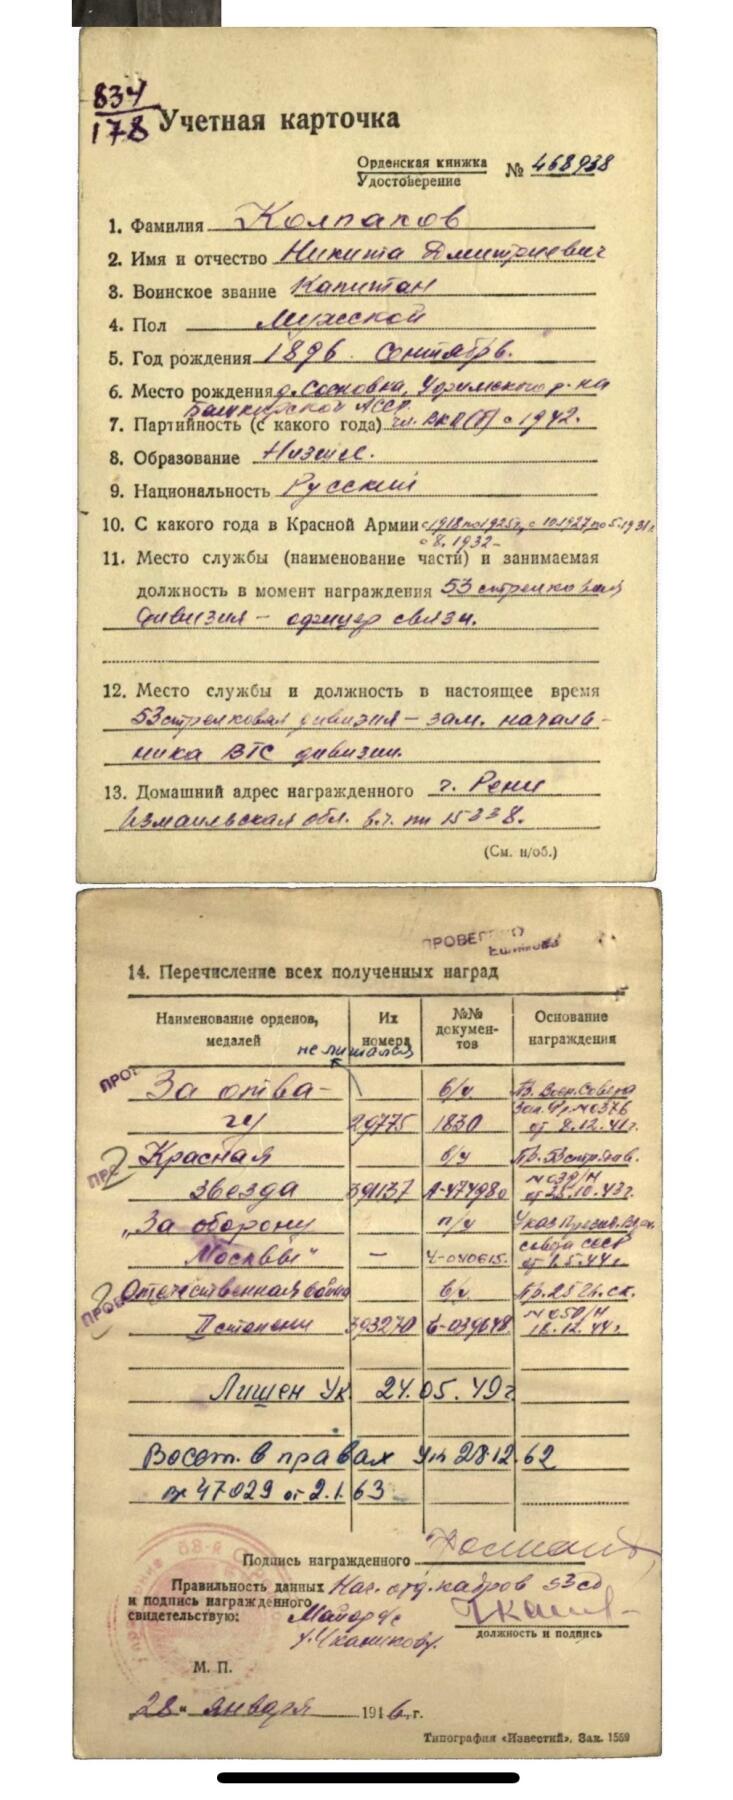 834
178
Учетная карточка
Орденская книжка
Удостоверение
№ 468938
1. Фамилия Колпаков
2. Имя и отчество Никита Дмитриевич
3. Воинское звание Капитан
4. Пол Мужской
5. Год рождения 1896 сентябрь.
6. Место рождения д. Сосновка, Уфимского р-на
Башкирской АССР
7. Партийность (с какого года) чл. ВКП(б) с 1942.
8. Образование Низшее.
9. Национальность Русский
10. С какого года в Красной Армии с 1918 по 1925г, с 10.1927 по 5.1931г
с 8.1932-
11. Место службы (наименование части) и занимаемая
должность в момент награждения 53 стрелковая
дивизия – офицер связи.
12. Место службы и должность в настоящее время
53 стрелковая дивизия – зам. началь-
ника ВТС дивизии.
13. Домашний адрес награжденного г. Рени
Измаильская обл. в.ч. пп 15338.
(См. н/об.)
ПРОВЕРЕНО
14. Перечисление всех полученных наград
Наименование орденов, медалей
Их номера
№№ документов
Основание награждения
не лишался
За отва-
б/у
Пр. Воен. Совета
гу 29775 1830
Зап. Фр. № 0376
от 8.12.41г.
Красная
б/у
Пр. 53 стр. див.
звезда 391137 А-474980
№ 039/н
от 28.10.43г.
„За оборону
п/у
Указ Презид. Верх.
Москвы" – Ч-040615.
Совета СССР
от 1.5.44г.
Отечественная война
в/у
Пр. 25 Гв. ск.
II степени 393270 Б-039648
№ 050/н
18.12.44г.
Лишен Ук. 24.05.49г
Восст. в правах Ук 28.12.62
вх 47029 от 2.1.63
Подпись награжденного
Правильность данных и подпись награжденного свидетельствую:
Нач. отд. кадров 53 сд
Майор а/с
должность и подпись
М. П.
„28" января 1946 г.
Типография «Известий». Зак. 1559